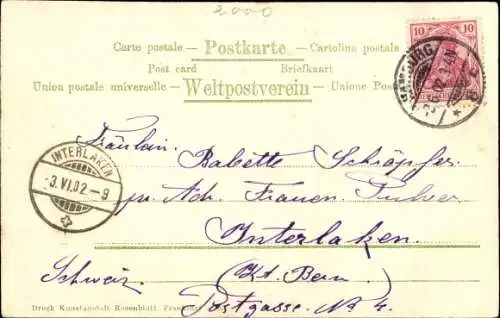 2000
Carte postale — Postkarte — Cartolina postale
Post card Briefkaart
Union postale universelle — Weltpostverein — Unione Pos
10 10
HAMBURG
INTERLAKEN
3.VI.02-9
Fräulein
Babette Schöpfer
pr. Adr. Frauen
Interlaken.
Schweiz. (Kt. Bern)
Postgasse. No 4.
Druck Kunstanstalt Rosenblatt, Frank